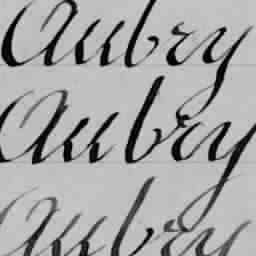 Aubry
Aubry
Aubry